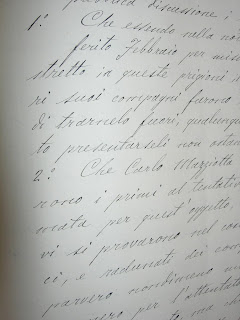 discussione i
1.° Che essendo nella not
ferito Febbraio per miss
stretto in queste prigioni s
ri suoi compagni furono
di trarnelo fuori, qualunqu
to presentarseli non ostan
2.° Che Carlo Mazziotta
rono i primi al tentativ
mata per quest'oggetto,
vi si provarono nel con
ci, e radunati dei comp
parvero nondimeno m
per l'attentat
ma che